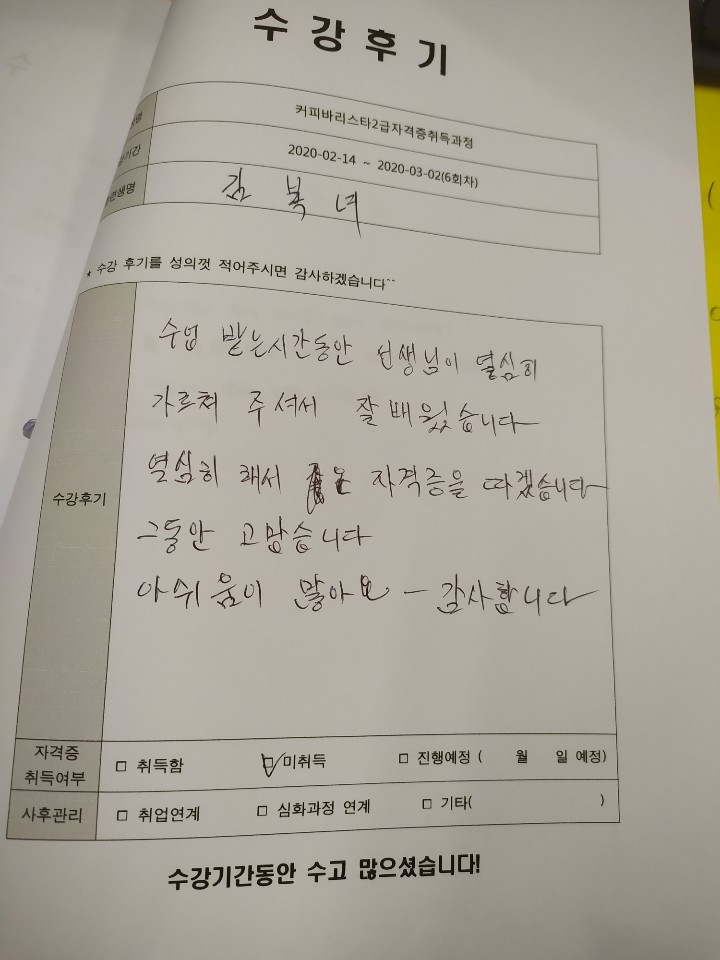 수강후기
명 커피바리스타2급자격증취득과정
기간 2020-02-14 ~ 2020-03-02(6회차)
생명 김복녀
★ 수강 후기를 성의껏 적어주시면 감사하겠습니다~~
수강후기
수업 받는시간동안 선생님이 열심히
가르쳐 주셔서 잘 배웠습니다
열심히 해서 자격증을 따겠습니다
그동안 고맙습니다
아쉬움이 많아요 - 감사합니다
자격증 취득여부 □ 취득함 ☑ 미취득 □ 진행예정 ( 월 일 예정)
사후관리 □ 취업연계 □ 심화과정 연계 □ 기타( )
수강기간동안 수고 많으셨습니다!